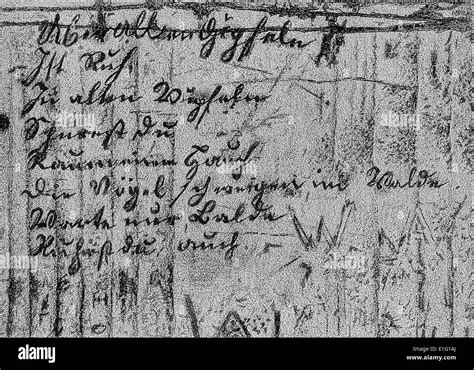 Über allen Gipfeln
Ist Ruh
In allen Wipfeln
Spürest Du
Kaum einen Hauch
Die Vögel schweigen im Walde.
Warte nur, Balde
Ruhest du, auch.
alamy
E1G1AJ
www.alamy.com